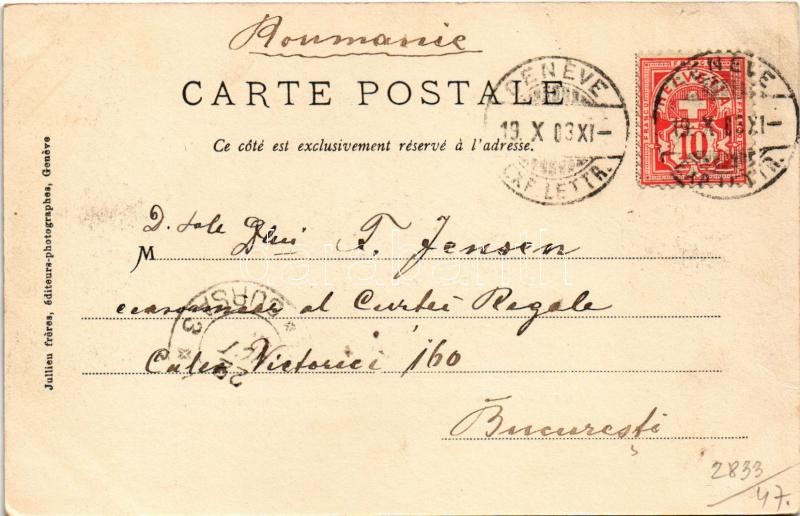 Roumanie
CARTE POSTALE
Ce côté est exclusivement réservé à l'adresse.
GENÈVE
19. X 03 XI
EXP. LETTR.
HELVETIA
FRANCO
10
GENÈVE
19. X 03 XI
EXP. LETTR.
D. sale
M
T. Jensen
al Curtei Regale
Calea Victoriei 160
Bucureşti
Jullien frères, éditeurs-photographes, Genève
darabanth
2833
47.